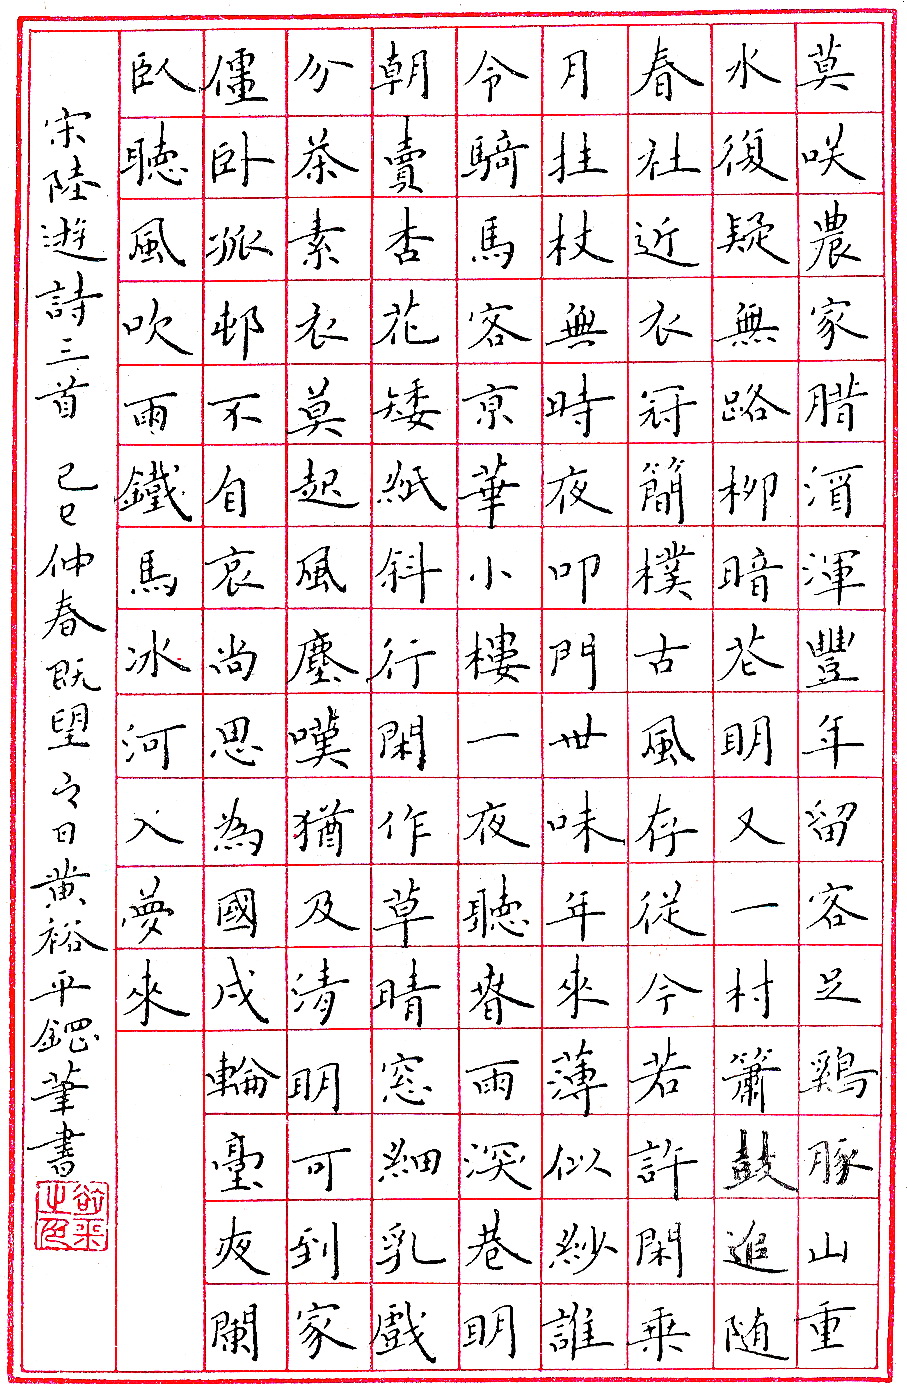 莫咲農家腊酒渾豐年留客足鷄豚山重
水復疑無路柳暗花明又一村簫鼓追随
春社近衣冠簡樸古風存從今若許閑乗
月拄杖無時夜叩門世味年來薄似紗誰
令騎馬客京華小樓一夜聽春雨深巷明
朝賣杏花矮紙斜行閑作草晴窓細乳戲
分茶素衣莫起風塵嘆猶及清明可到家
僵卧孤邨不自哀尚思為國戍輪臺夜闌
臥聽風吹雨鐵馬冰河入夢來
宋陸遊詩三首 己巳仲春既望之日黄裕平鋼筆書